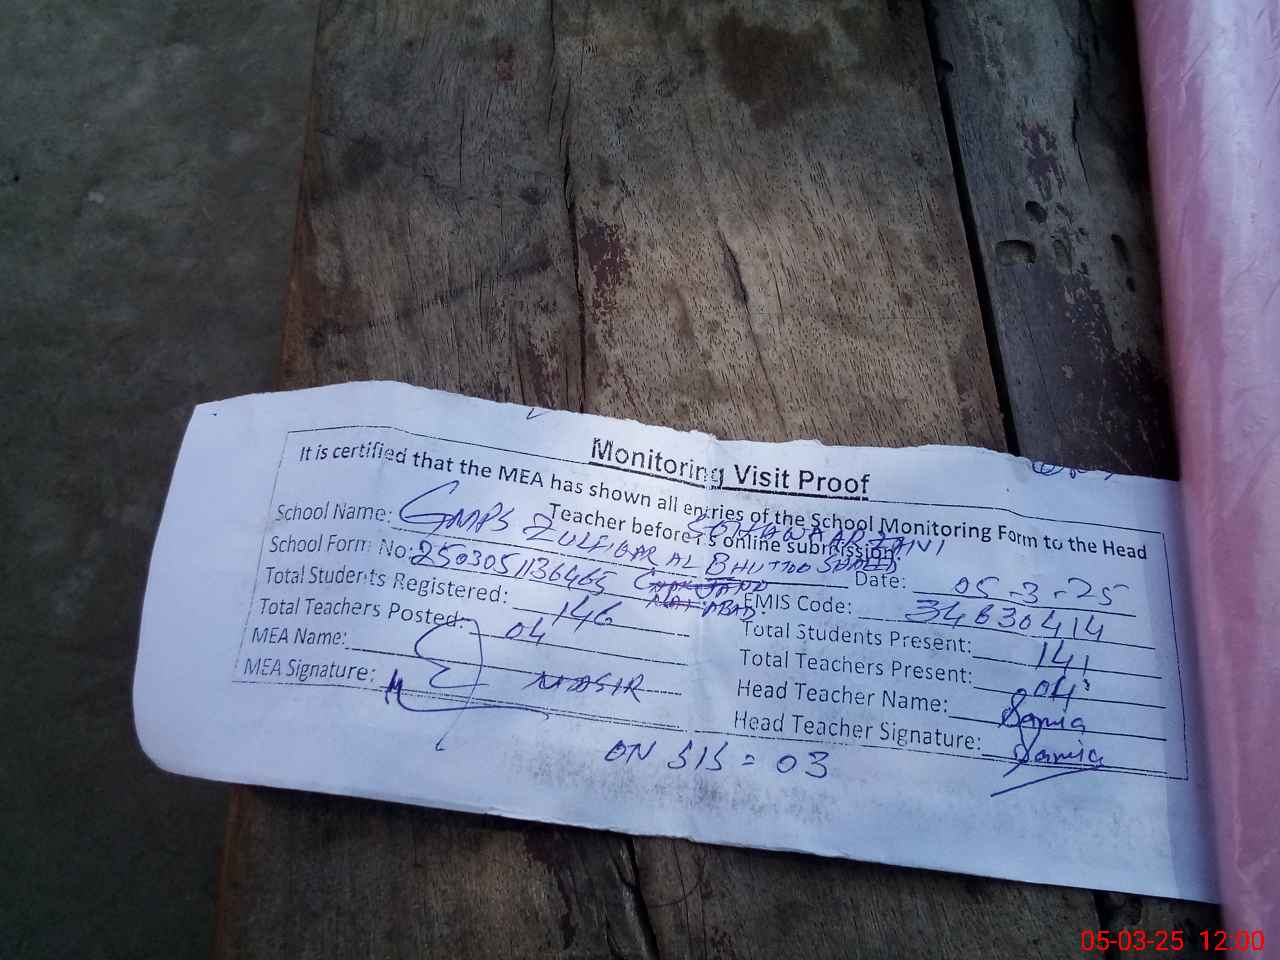 Monitoring Visit Proof
It is certified that the MEA has shown all entries of the School Monitoring Form to the Head
Teacher before its online submission.
School Name: GMPS ZULFIQAR AL BHUTTO
Date: 05-3-25
School Form No: 2503051136465
EMIS Code: 34630414
Total Students Registered: 146
Total Students Present: 141
Total Teachers Posted: 04
Total Teachers Present: 04
MEA Name: NASIR
Head Teacher Name: Samia
MEA Signature:
Head Teacher Signature: Samia
ON SIS = 03
05-03-25 12:00